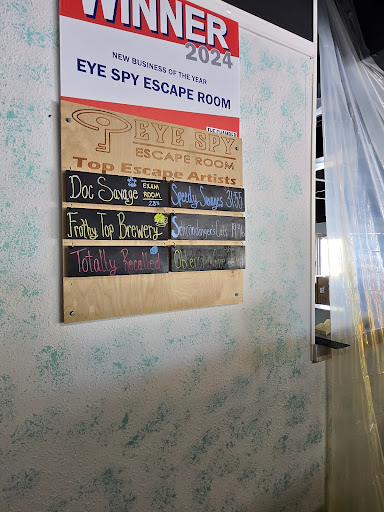 WINNER
2024
NEW BUSINESS OF THE YEAR
EYE SPY ESCAPE ROOM
EYE SPY
ESCAPE ROOM
Top Escape Artists
Doc Savage EXAM ROOM Speedy Savages 31:55
Frothy Top Brewery
Totally Recalled